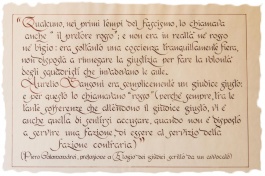 "Qualcuno, nei primi tempi del fascismo, lo chiamava
anche "il pretore rosso"; e non era in realtà né rosso
né bigio: era soltanto una coscienza tranquillamente fiera,
non disposta a rinnegare la giustizia per fare la volontà
degli squadristi che invadevano le aule.
Aurelio Sansoni era semplicemente un giudice giusto:
e per questo lo chiamavano "rosso" (perché sempre, tra le
tante sofferenze che attendono il giudice giusto, vi è
anche quella di sentirsi accusare, quando non è disposto
a servire una fazione, di essere al servizio della
fazione contraria)"
(Piero Calamandrei, prefazione a Elogio dei giudici scritto da un avvocato)